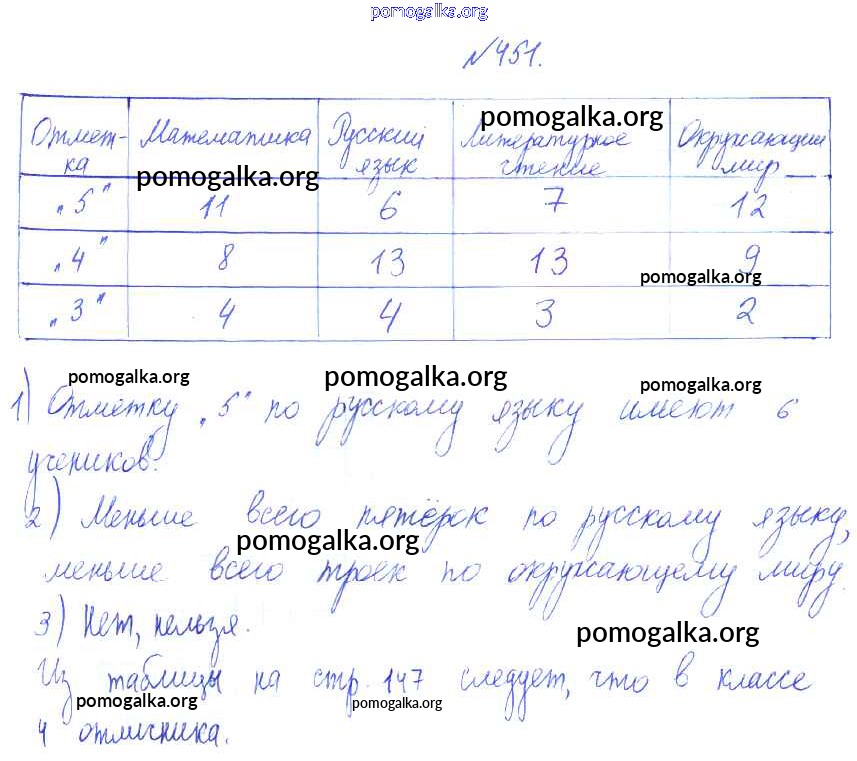 pomogalka.org
№451.
Отмет- Математика Русский Литературное Окружающий
ка язык чтение мир
pomogalka.org
pomogalka.org
„5" 11 6 7 12
„4" 8 13 13 9
pomogalka.org
„3" 4 4 3 2
pomogalka.org pomogalka.org pomogalka.org
1) Отметку „5" по русскому языку имеют 6
учеников.
2) Меньше всего пятёрок по русскому языку,
pomogalka.org
меньше всего троек по окружающему миру.
3) Нет, нельзя.
pomogalka.org
Из таблицы на стр. 147 следует, что в классе
pomogalka.org pomogalka.org
4 отличника.